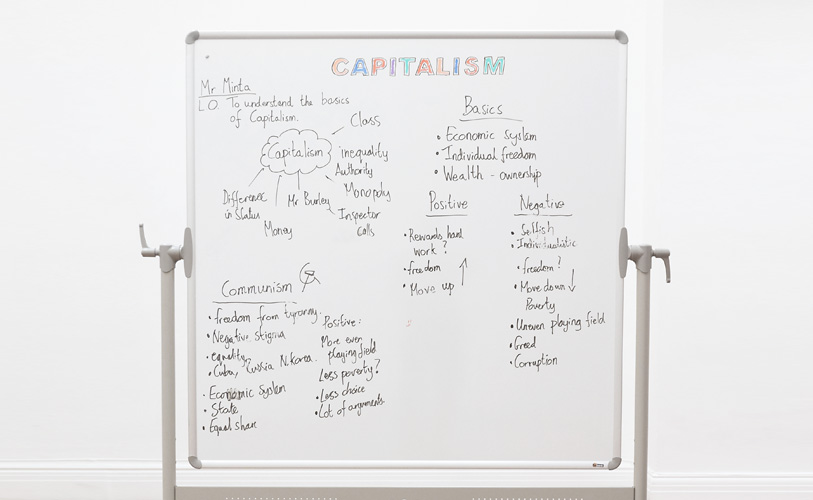 CAPITALISM
Mr Minta
L.O. To understand the basics
of Capitalism.
Capitalism
Class
inequality
Authority
Monopoly
Mr Burley
Inspector
calls
Money
Difference
in status
Basics
• Economic system
• Individual freedom
• Wealth - ownership
Positive
• Rewards hard
work?
• freedom
• Move up ↑
Negative
• Selfish
• Individualistic
• freedom?
• Move down ↓
Poverty
• Uneven playing field
• Greed
• Corruption
Communism
• freedom from tyranny.
• Negative stigma
• equality
• Cuba, Russia N.Korea.
• Economic System
• State
• Equal share
Positive:
More even
playing field
Less poverty?
• Less choice
• Lot of arguments